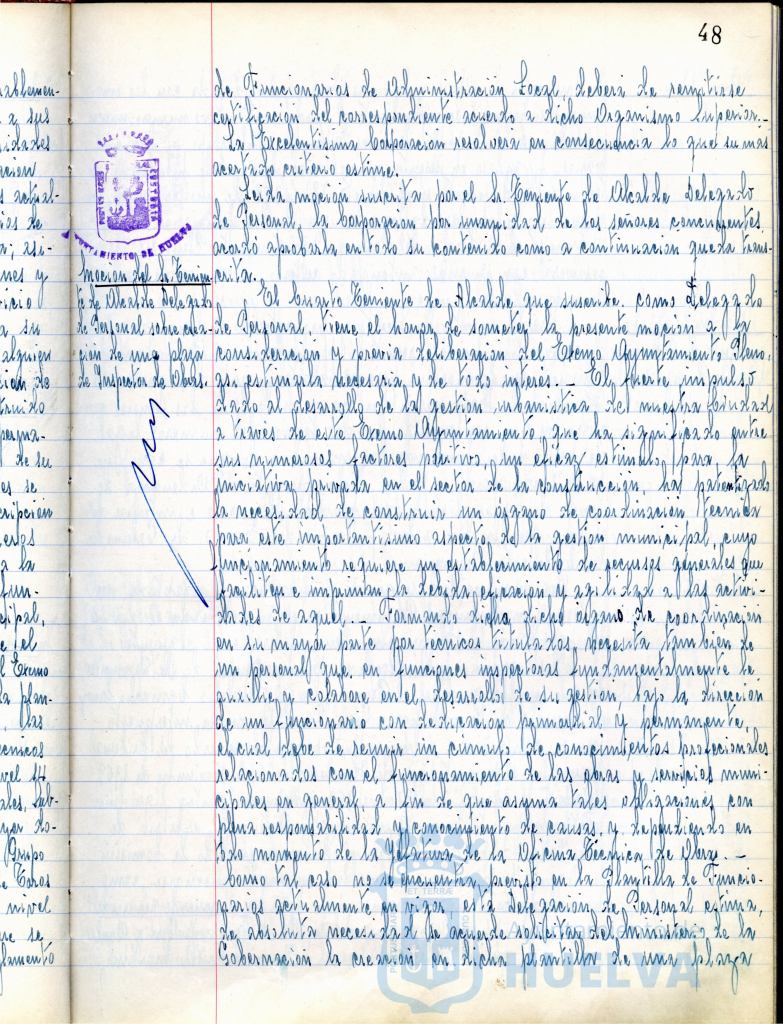 48
de Funcionarios de Administración Local, deberá de remitirse
certificación del correspondiente acuerdo a dicho Organismo Superior.-
La Excelentísima Corporación resolverá en consecuencia lo que su más
acertado criterio estime.
Leida moción suscrita por el Sr. Teniente de Alcalde Delegado
de Personal, la Corporación por unanimidad de los señores concurrentes
acordó aprobarla en todo su contenido como a continuación queda trans-
crita.
Moción del Sr. Tenien-
te de Alcalde Delegado
de Personal sobre crea-
ción de una plaza
de Inspector de Obras.
El Cuarto Teniente de Alcalde que suscribe, como Delegado
de Personal, tiene el honor de someter la presente moción a la
consideración y previa deliberación del Excmo Ayuntamiento Pleno,
así estimarla necesaria y de todo interés.- El fuerte impulso
dado al desarrollo de la gestión urbanística de nuestra Ciudad
a través de este Excmo Ayuntamiento que ha significado entre
sus numerosos factores positivo, un eficaz estímulo para la
iniciativa privada en el sector de la construcción, ha patentizado
la necesidad de construir un órgano de coordinación técnica
para este importantísimo aspecto de la gestión municipal, cuyo
funcionamiento requiere un establecimiento de recursos generales que
faciliten e impriman la debida eficacia y agilidad a las activi-
dades de aquel.- Formando dicho dicho órgano de coordinación
en su mayor parte por técnicos titulados, necesita también de
un personal que, en funciones inspectoras fundamentalmente le
auxilie y colabore en el desarrollo de su gestión, bajo la dirección
de un funcionario con dedicación primordial y permanente,
el cual debe de reunir un cumulo de conocimientos profesionales
relacionados con el funcionamiento de las obras y servicios muni-
cipales en general, a fin de que asuma tales obligaciones con
plena responsabilidad y conocimiento de causas, y dependiendo en
todo momento de la Jefatura de la Oficina Técnica de Obras.-
Como tal caso no se encuentra previsto en la Plantilla de Funcio-
narios actualmente en vigor, esta Delegación de Personal estima,
de absoluta necesidad se acuerde solicitar del Ministerio de la
Gobernación la creación en dicha plantilla de una plaza
AYUNTAMIENTO DE HUELVA
Ayuntamiento de
HUELVA